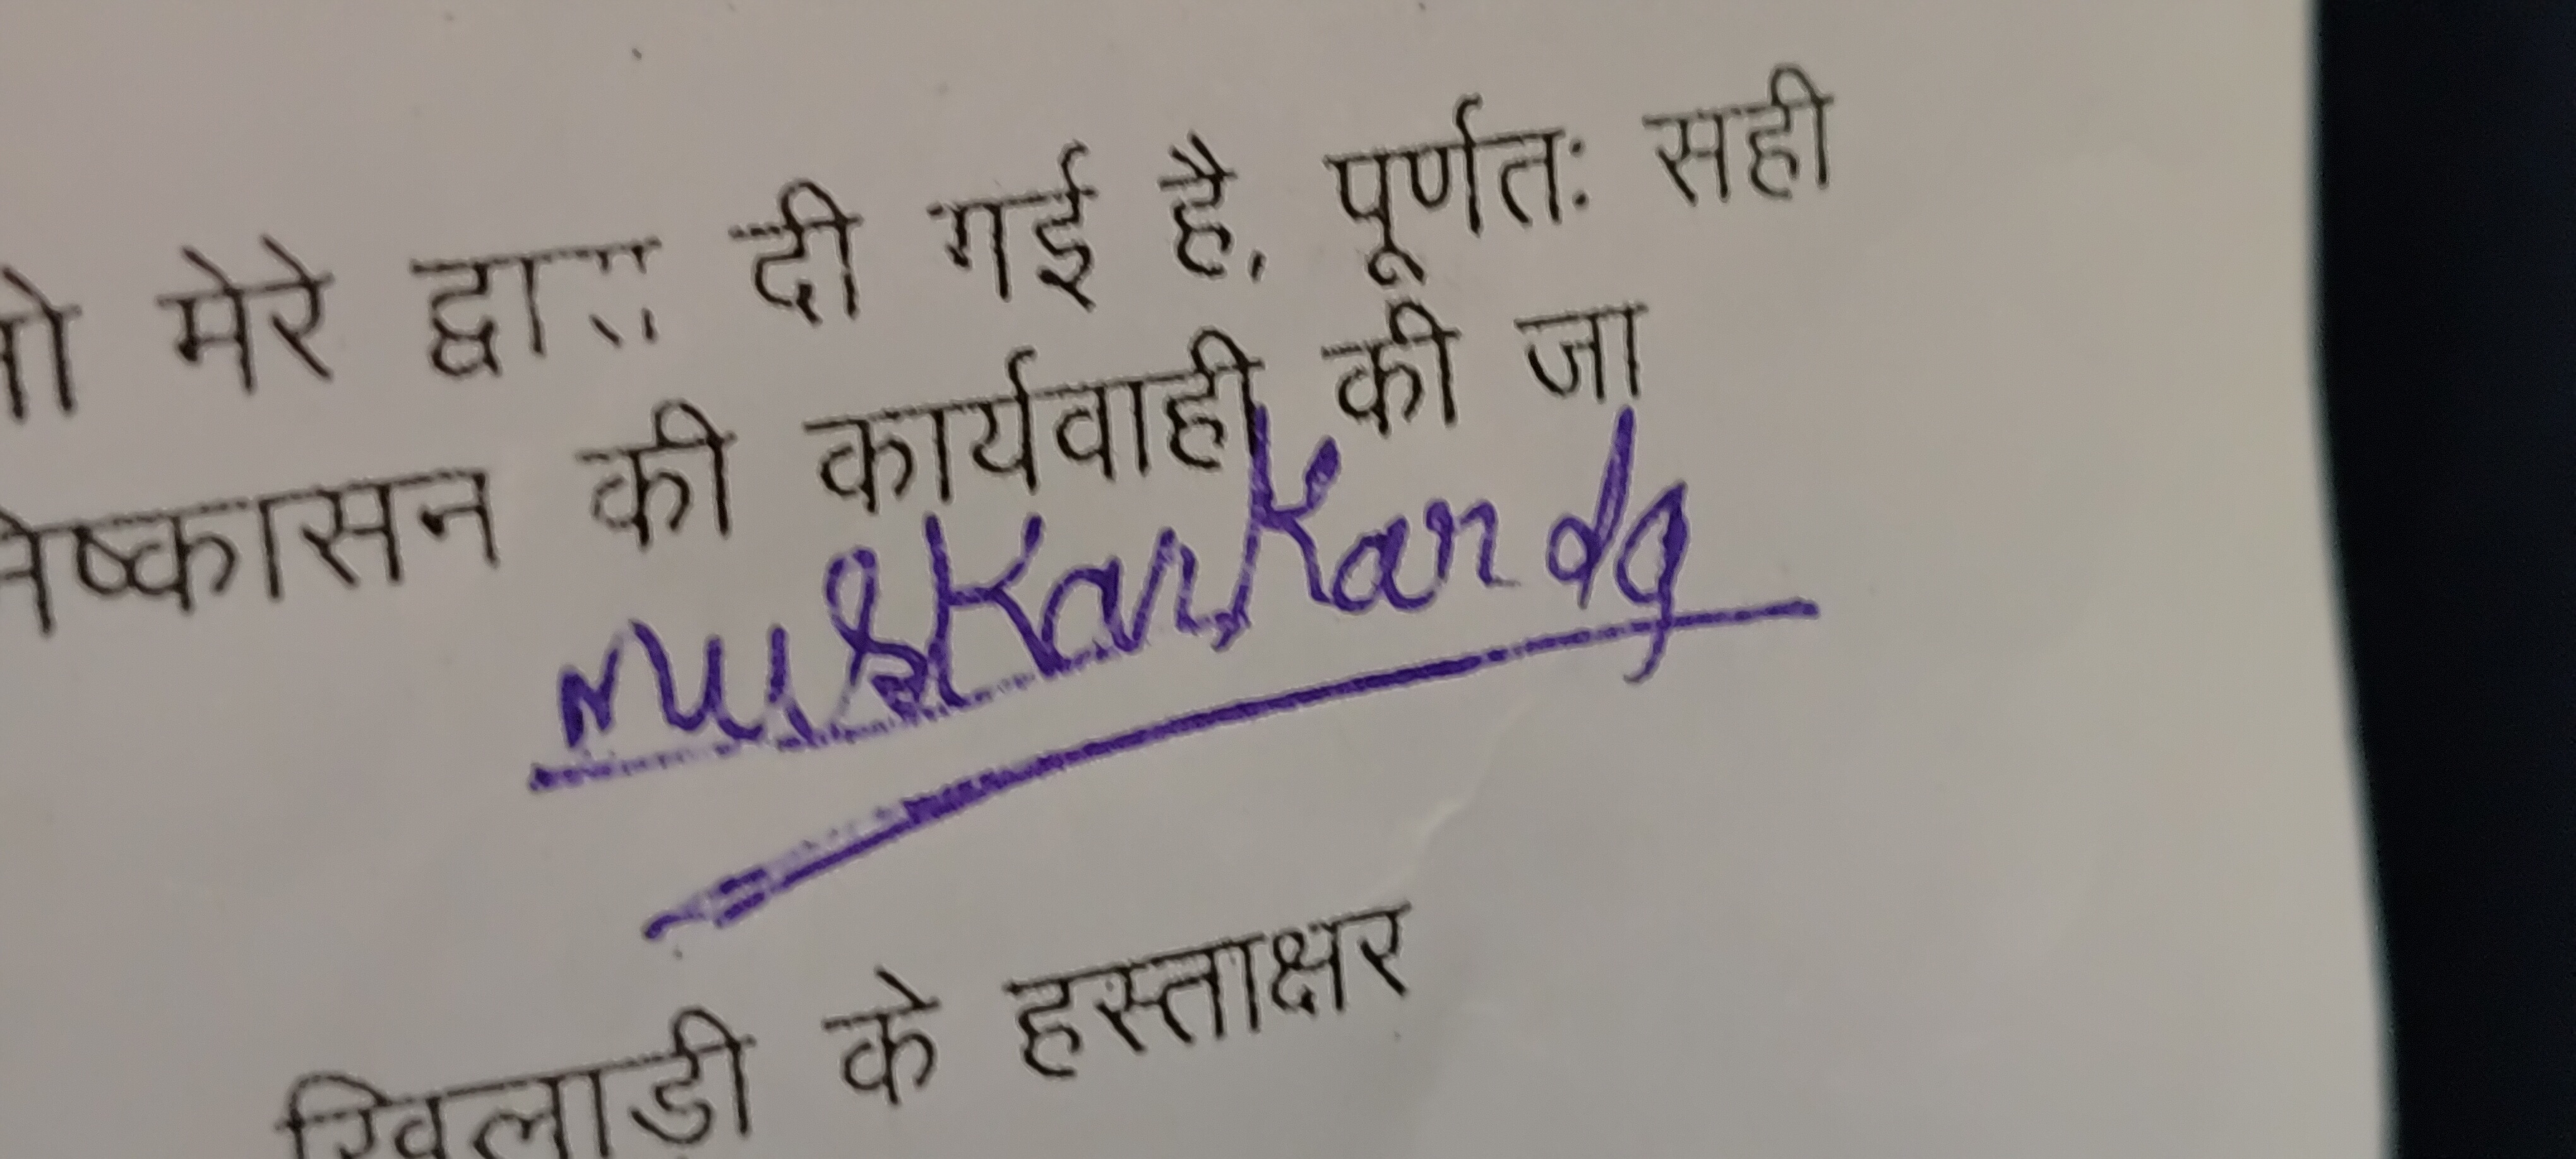 मेरे द्वारा दी गई है, पूर्णतः सही
की कार्यवाही की जा
Muskan Kanda
खिलाड़ी के हस्ताक्षर